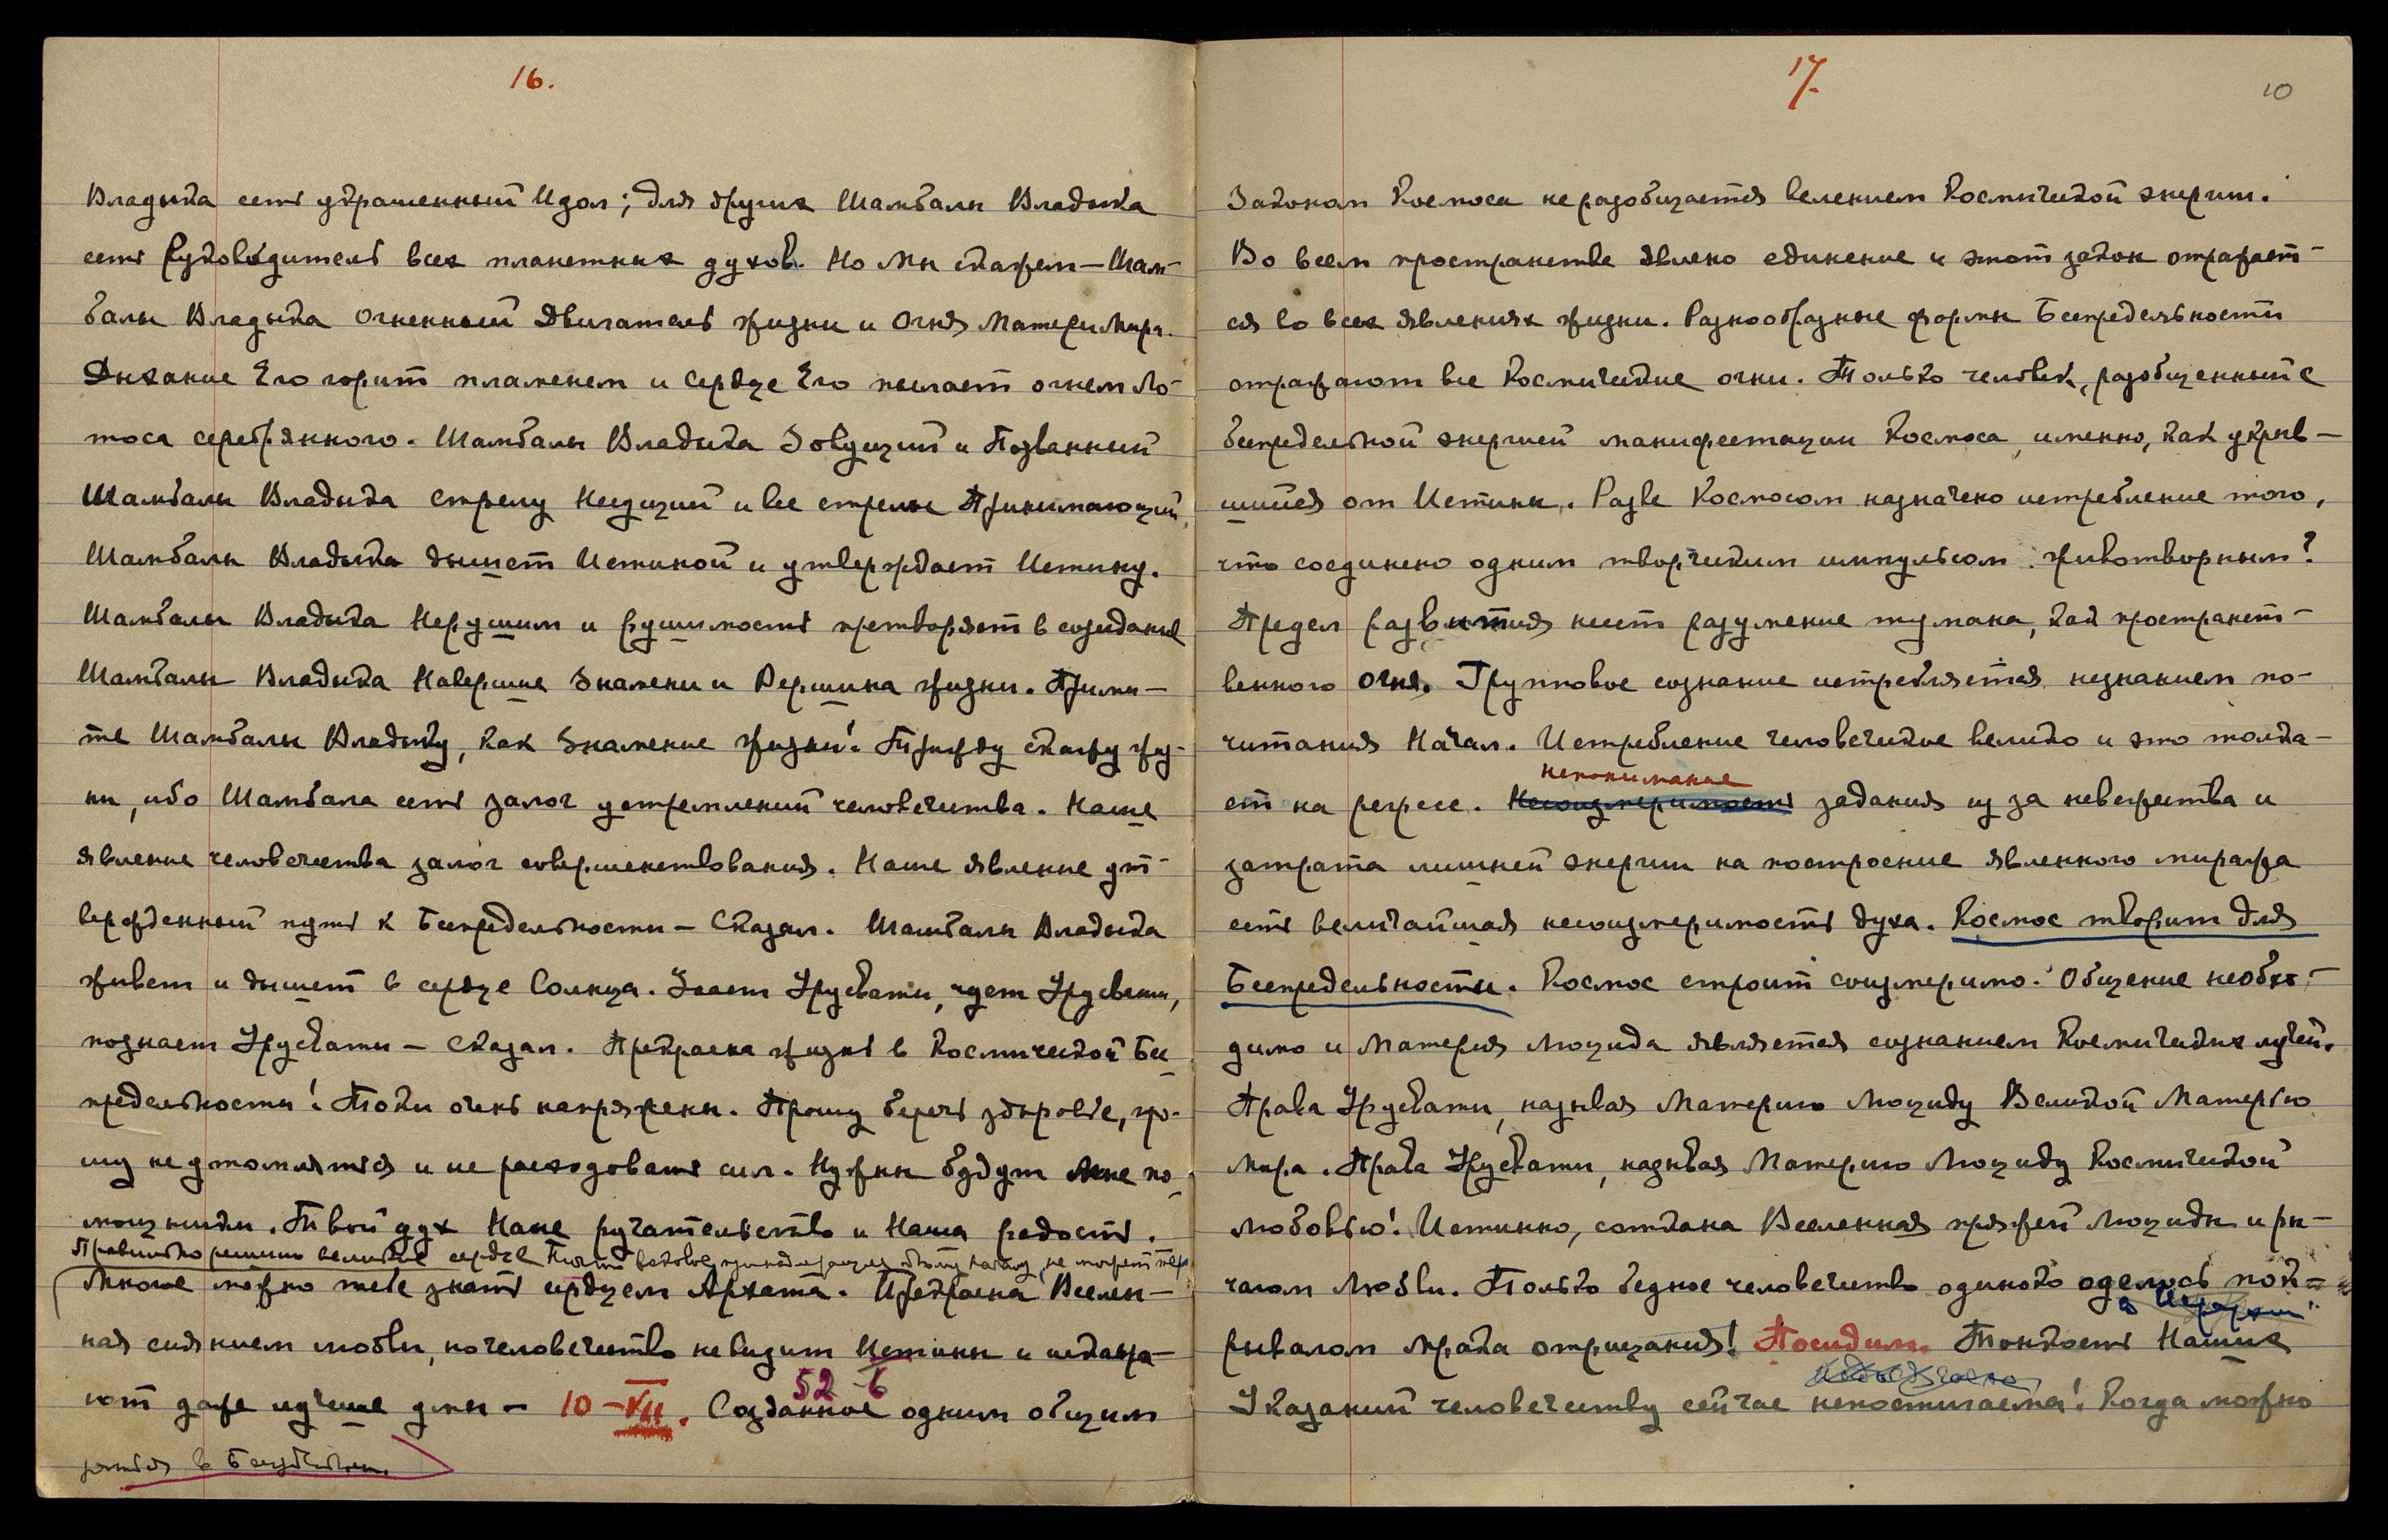 16.
Владыка есть украшенный Идол; для других Шамбалы Владыка
есть Руководитель всех планетных духов. Но Мы скажем — Шам-
балы Владыка Огненный Двигатель жизни и Огня Матери Мира.
Дыхание Его горит пламенем и сердце Его пылает огнем Ло-
тоса серебрянного. Шамбалы Владыка Зовущий и Позванный
Шамбалы Владыка стрелу Несущий и все стрелы Принимающий.
Шамбалы Владыка дышет Истиной и утверждает Истину.
Шамбалы Владыка Нерушим и рушимость претворяет в созидание
Шамбалы Владыка Навершие Знамени и Вершина жизни. Прими-
те Шамбалы Владыку, как Знамение жизни! Трижды скажу жиз-
ни, ибо Шамбала есть залог устремлений человечества. Наше
явление человечества залог совершенствования. Наше явление ут-
вержденный путь к Беспредельности — Сказал. Шамбалы Владыка
живет и дышет в сердце Солнца. Знает Урусвати, чует Урусвати,
познает Урусвати — Сказал. Прекрасна жизнь в Космической Бес-
предельности! Токи очень напряжены. Прошу беречь здоровье, про-
шу не утомляться и не расходовать сил. Нужны будут Мне по-
мощники. Твой дух Наше ручательство и Наша радость.
Правильно решило великое сердце не может тер
Многое можно тебе знать сердцем Архата. Прекрасна Вселен-
ная сиянием любви, но человечество не видит Истины и искажа-
52 - б
ют даже лучшие умы — 10 - XII. Созданное одним общим
ряться в
17.
10
Законом Космоса не разобщается велением Космической энергии.
Во всем пространстве явлено единение и этот закон отражает-
ся во всех явлениях жизни. Разнообразные формы Беспредельности
отражают все Космические огни. Только человек, разобщенный с
беспредельной энергией манифестации Космоса, именно, как укрыв-
шийся от Истины. Разве Космосом назначено истребление того,
что соединено одним творческим импульсом животворным?
Предел развития несет разумение тумана, как пространст-
венного Огня. Групповое сознание истребляется незнанием по-
читания Начал. Истребление человеческое велико и это толка-
непонимание
ет на регресс. Несоизмеримость задания из за невежества и
затрата лишней энергии на построение явленного миража
есть величайшая несоизмеримость духа. Космос творит для
Беспредельности. Космос строит соизмеримо. Общение необхо-
димо и Материя Люцида является сознанием Космических лучей.
Права Урусвати, называя Материю Люциду Великой Матерью
Мира. Права Урусвати, называя Материю Люциду Космической
любовью! Истинно, соткана Вселенная пряжей Люциды и ры-
чагом Любви. Только бедное человечество одиноко оделось пок-
и Иерархии
рывалом мрака отрицания! Посидим. Тонкость Наших
Указаний человечеству сейчас непостигаема! Когда можно